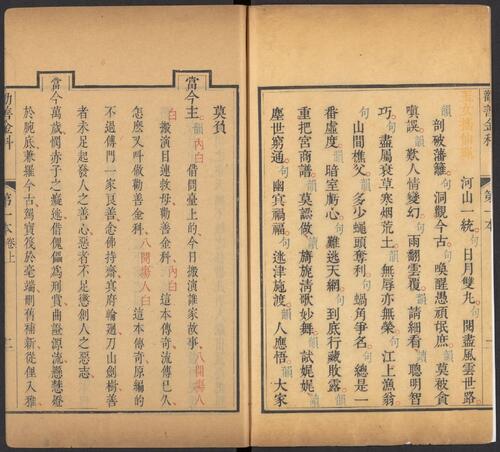 勸善金科 第一本
河山一統句日月雙丸句閱盡風雲世路
韻剖破藩籬句洞觀今古句喚醒愚頑氓庶韻莫被貪
嗔誤韻歎人情變幻句雨翻雲覆韻請細看讀聰明智
巧句盡屬衰草寒烟荒土韻無辱亦無榮句江上漁翁
句山間樵父韻多少蠅頭奪利句蝸角爭名句總是一
番虛度韻暗室虧心句難逃天網句到底行藏敗露韻
重把宮商譜韻莫認做讀旖旎清歌妙舞韻試娓娓讀
塵世窮通句幽冥禍福句迷津施渡韻人應悟韻大家
莫負
當今主韻內白借問臺上的今日搬演誰家故事八開場人
白搬演目連救母勸善金科內白這本傳奇流傳已久
怎麼又叫做勸善金科八開場人白這本傳奇原編的
不過傅門一家良善念佛持齋冥府輪迴刀山劍樹善
者未足起發人之善心惡者不足懲創人之惡志
當今萬歲憫赤子之癡迷借傀儡為刑賞曲證源流懸慧燈
於腕底兼羅今古駕寶筏於毫端刪舊補新從俚入雅
勸善金科 第一本卷上 二